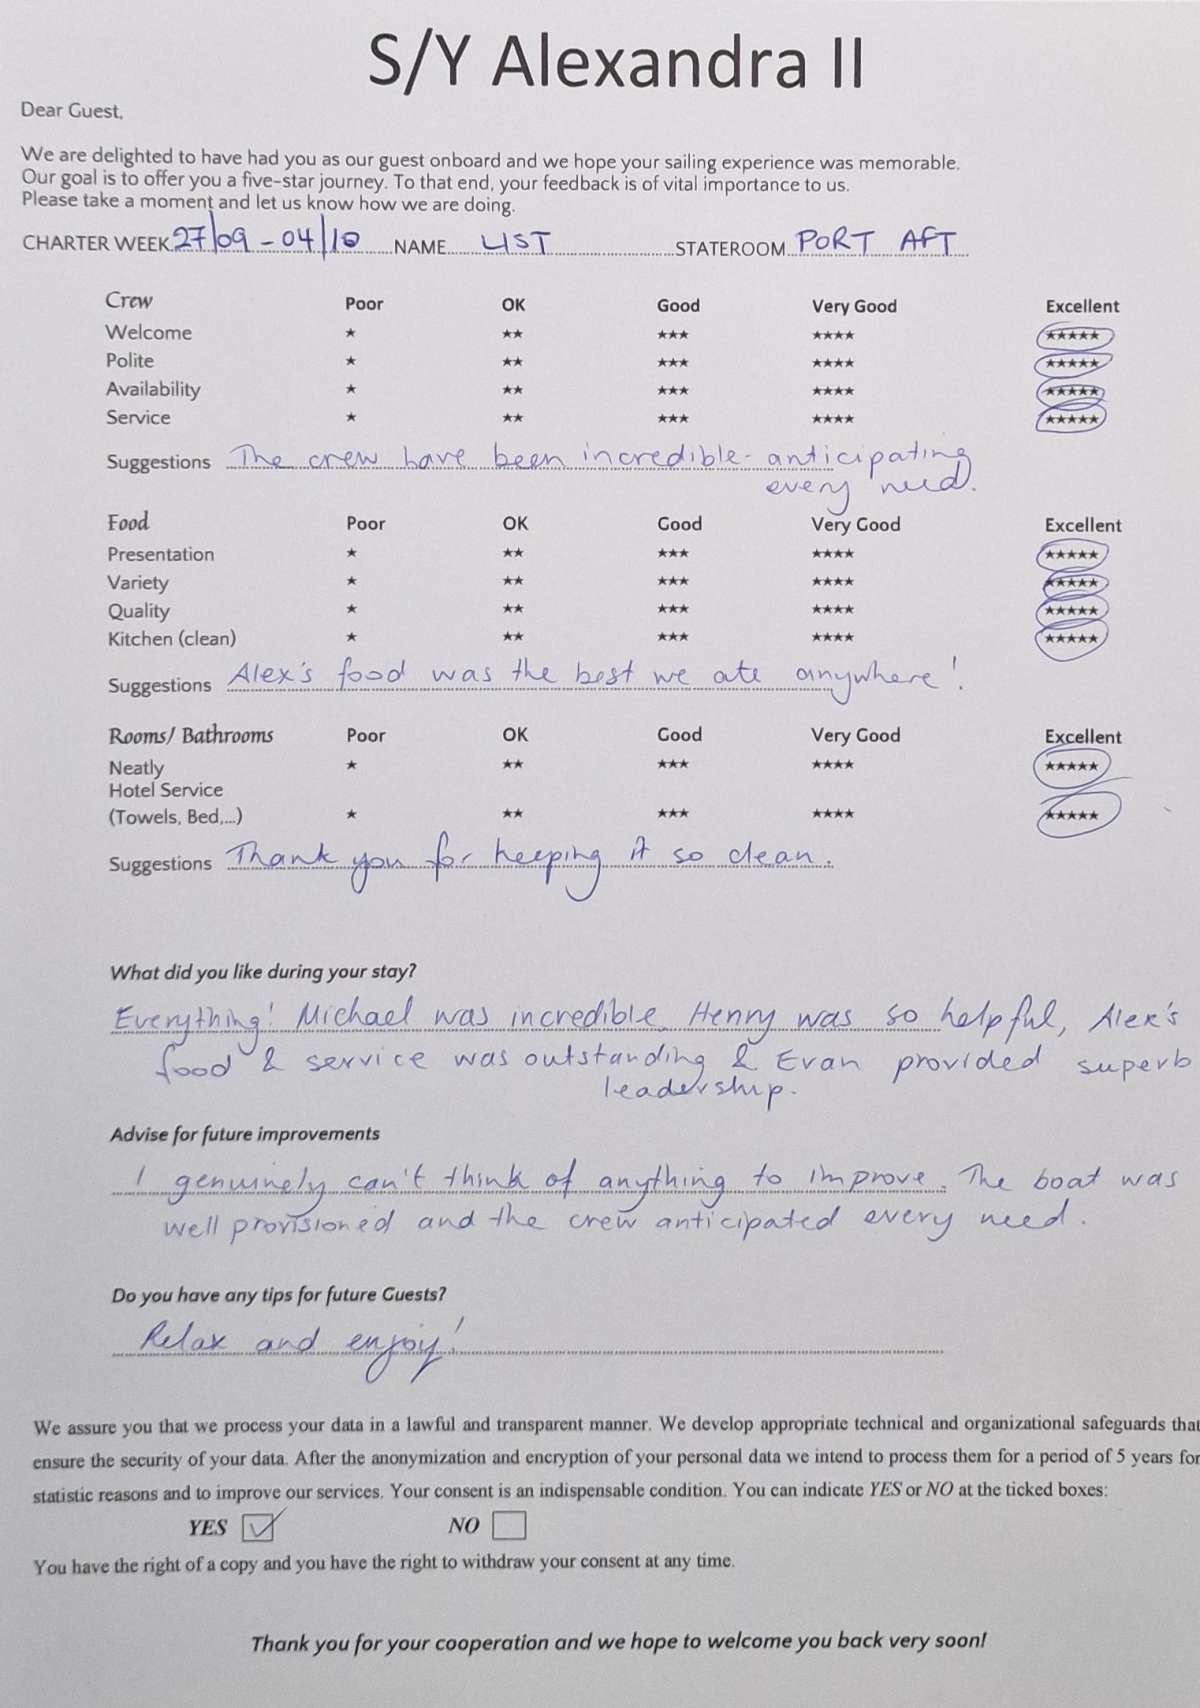 S/Y Alexandra II
Dear Guest,
We are delighted to have had you as our guest onboard and we hope your sailing experience was memorable.
Our goal is to offer you a five-star journey. To that end, your feedback is of vital importance to us.
Please take a moment and let us know how we are doing.
CHARTER WEEK 27/09 - 04/10 NAME LIST STATEROOM PORT AFT
Crew Poor OK Good Very Good Excellent
Welcome ★ ★★ ★★★ ★★★★ ★★★★★
Polite ★ ★★ ★★★ ★★★★ ★★★★★
Availability ★ ★★ ★★★ ★★★★ ★★★★★
Service ★ ★★ ★★★ ★★★★ ★★★★★
Suggestions The crew have been incredible - anticipating
every need.
Food Poor OK Good Very Good Excellent
Presentation ★ ★★ ★★★ ★★★★ ★★★★★
Variety ★ ★★ ★★★ ★★★★ ★★★★★
Quality ★ ★★ ★★★ ★★★★ ★★★★★
Kitchen (clean) ★ ★★ ★★★ ★★★★ ★★★★★
Suggestions Alex's food was the best we ate anywhere!
Rooms/ Bathrooms Poor OK Good Very Good Excellent
Neatly ★ ★★ ★★★ ★★★★ ★★★★★
Hotel Service
(Towels, Bed,...) ★ ★★ ★★★ ★★★★ ★★★★★
Suggestions Thank you for keeping it so clean.
What did you like during your stay?
Everything! Michael was incredible, Henny was so helpful, Alex's
food & service was outstanding & Evan provided superb
leadership.
Advise for future improvements
I genuinely can't think of anything to improve. The boat was
well provisioned and the crew anticipated every need.
Do you have any tips for future Guests?
Relax and enjoy!
We assure you that we process your data in a lawful and transparent manner. We develop appropriate technical and organizational safeguards that
ensure the security of your data. After the anonymization and encryption of your personal data we intend to process them for a period of 5 years for
statistic reasons and to improve our services. Your consent is an indispensable condition. You can indicate YES or NO at the ticked boxes:
YES ☑ NO ☐
You have the right of a copy and you have the right to withdraw your consent at any time.
Thank you for your cooperation and we hope to welcome you back very soon!